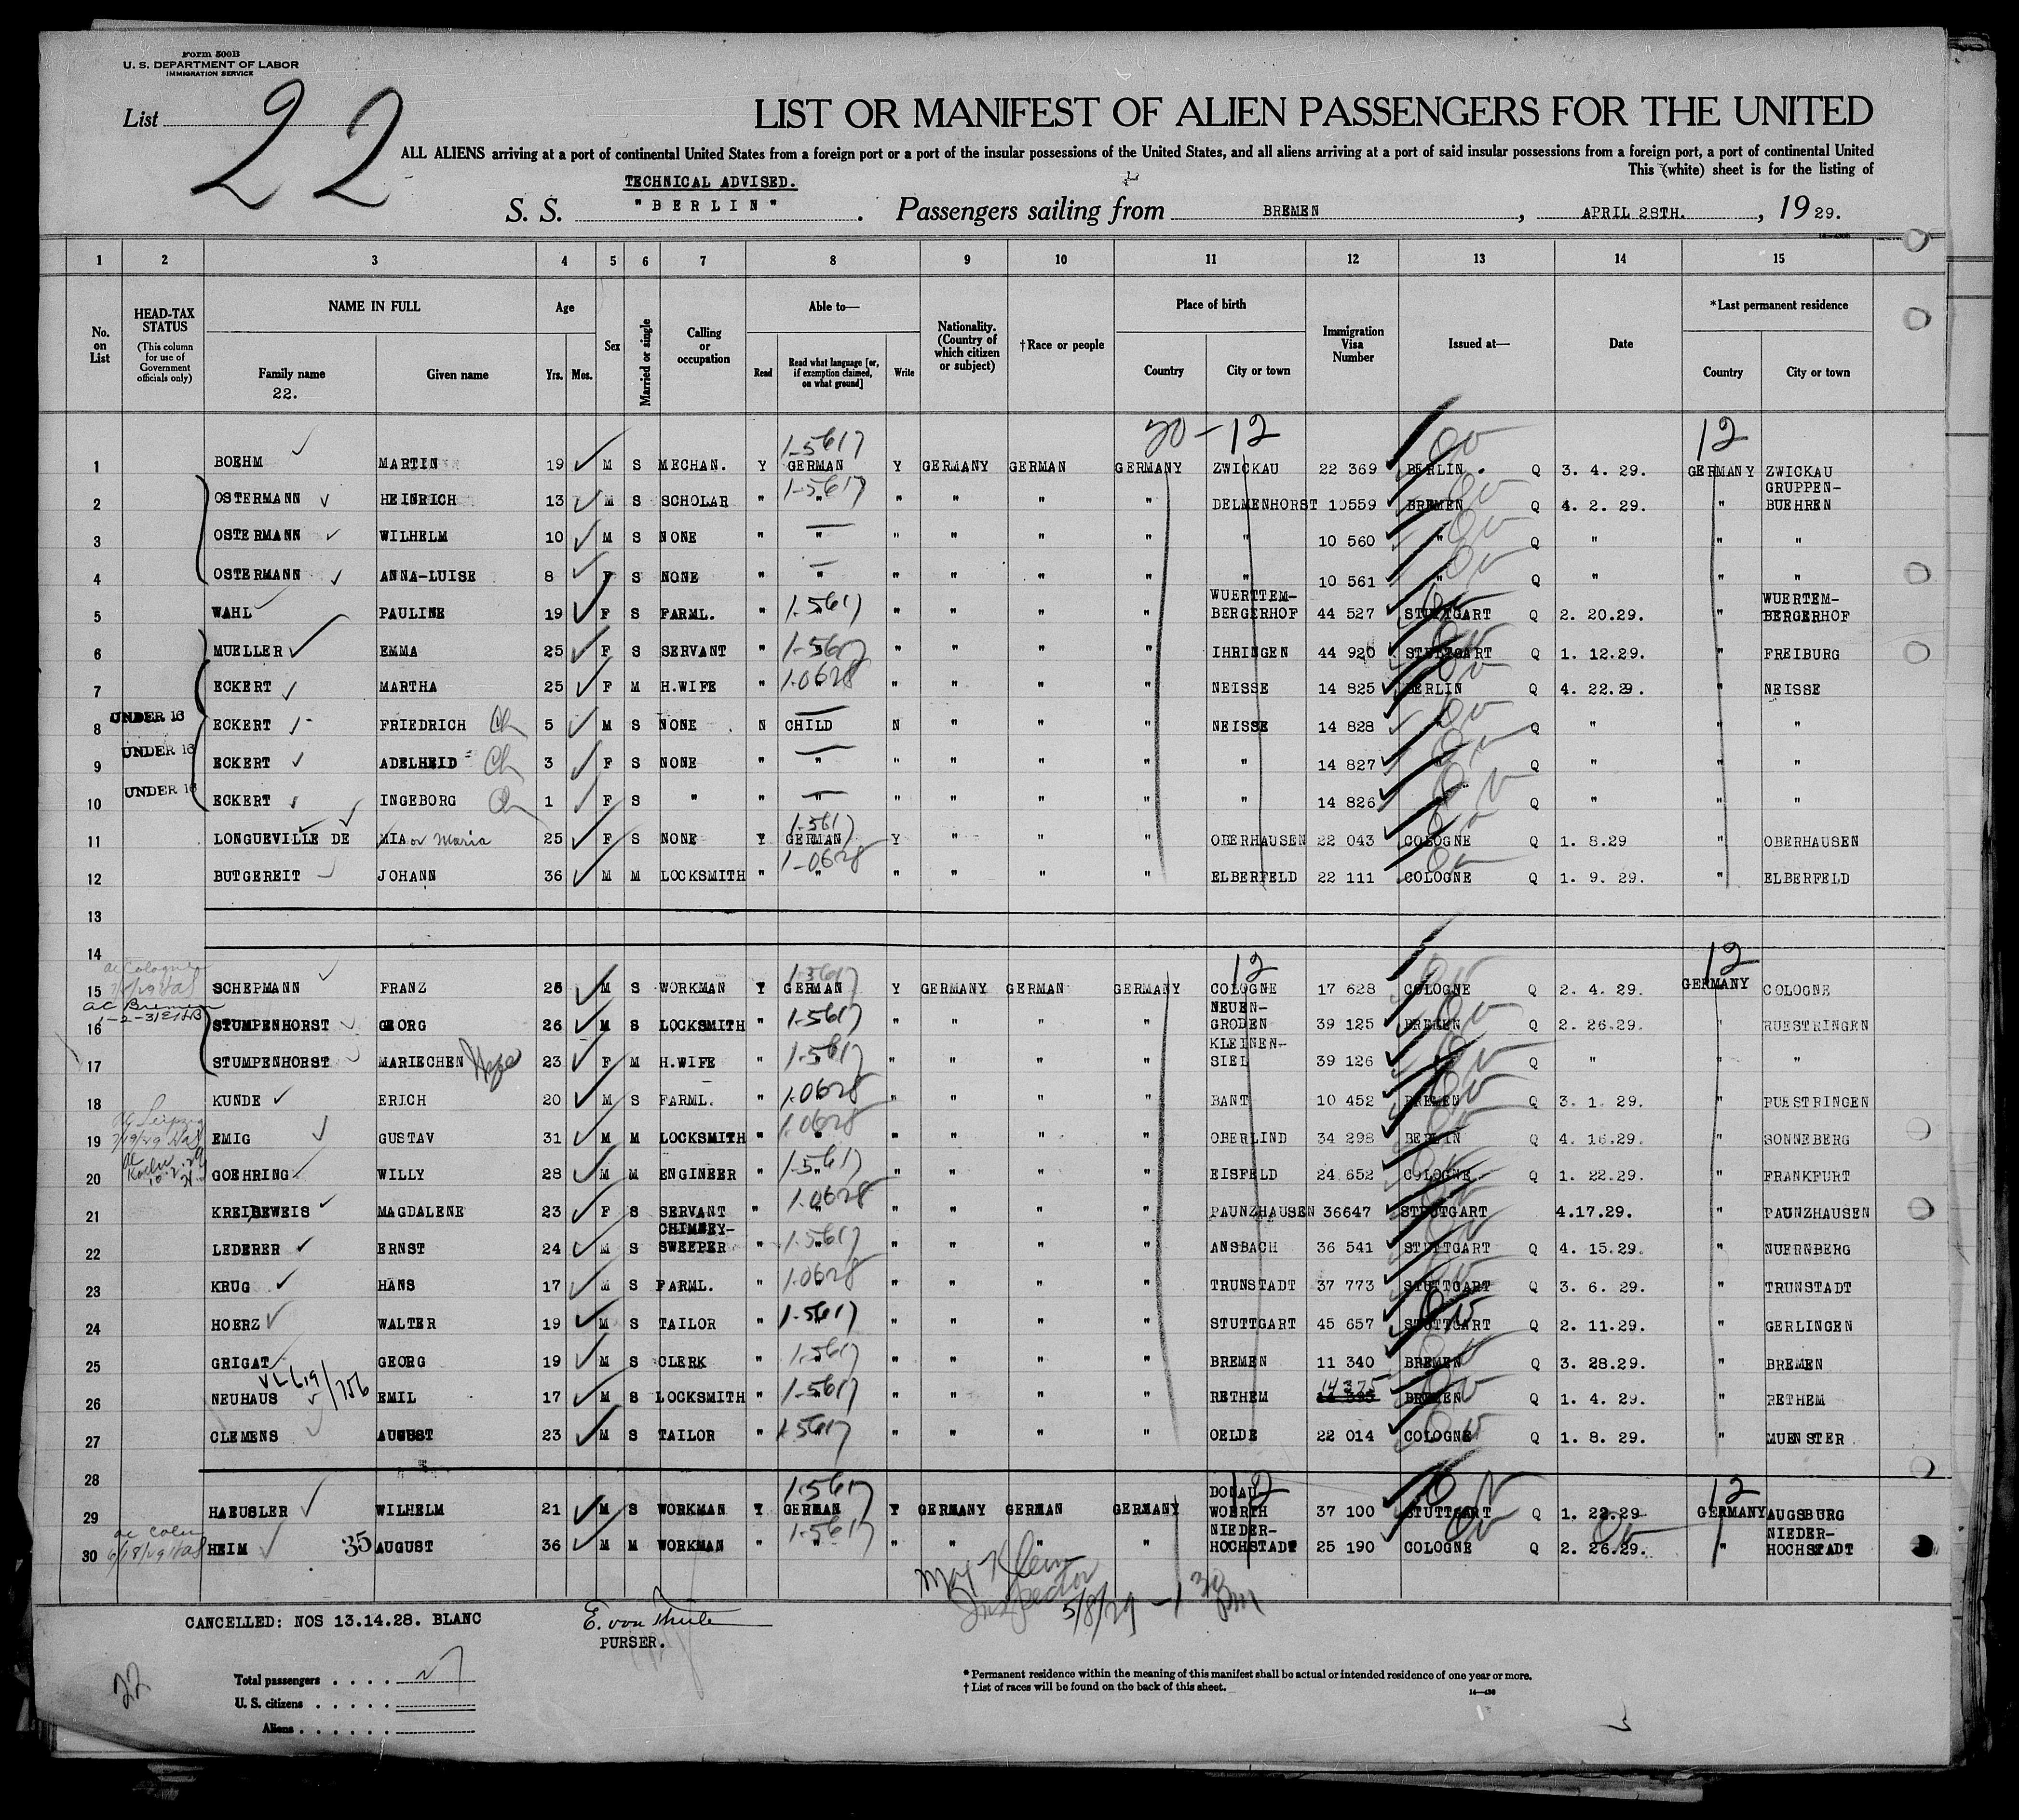 Form 500B
U. S. DEPARTMENT OF LABOR
IMMIGRATION SERVICE
List 22
LIST OR MANIFEST OF ALIEN PASSENGERS FOR THE UNITED
ALL ALIENS arriving at a port of continental United States from a foreign port or a port of the insular possessions of the United States, and all aliens arriving at a port of said insular possessions from a foreign port, a port of continental United
This (white) sheet is for the listing of
TECHNICAL ADVISED.
S. S. "BERLIN" . Passengers sailing from BREMEN , APRIL 28TH. , 19 29.
1 2 3 4 5 6 7 8 9 10 11 12 13 14 15
No. on List
HEAD-TAX STATUS (This column for use of Government officials only)
NAME IN FULL Family name Given name
22.
Age Yrs. Mos.
Sex
Married or single
Calling or occupation
Able to— Read Read what language [or, if exemption claimed, on what ground] Write
Nationality. (Country of which citizen or subject)
†Race or people
Place of birth Country City or town
Immigration Visa Number
Issued at—
Date
*Last permanent residence Country City or town
20-12 12
1 BOEHM MARTIN 19 M S MECHAN. Y 1-5617 GERMAN Y GERMANY GERMAN GERMANY ZWICKAU 22 369 BERLIN. Q 3. 4. 29. GERMANY ZWICKAU
2 OSTERMANN HEINRICH 13 M S SCHOLAR " 1-5617 " " " " " DELMENHORST 10559 BREMEN Q 4. 2. 29. " GRUPPEN-BUEHREN
3 OSTERMANN WILHELM 10 M S NONE " " " " " " " 10 560 " Q " " "
4 OSTERMANN ANNA-LUISE 8 F S NONE " " " " " " " 10 561 " Q " " "
5 WAHL PAULINE 19 F S FARML. " 1-5617 " " " " WUERTTEM-BERGERHOF 44 527 STUTTGART Q 2. 20.29. " WUERTEM-BERGERHOF
6 MUELLER EMMA 25 F S SERVANT " 1-5617 " " " " IHRINGEN 44 920 STUTTGART Q 1. 12.29. " FREIBURG
7 ECKERT MARTHA 25 F M H.WIFE " 1-0628 " " " " NEISSE 14 825 BERLIN Q 4. 22.29. " NEISSE
UNDER 16
8 ECKERT FRIEDRICH Ch 5 M S NONE N CHILD N " " " NEISSE 14 828 " Q " " "
UNDER 16
9 ECKERT ADELHEID Ch 3 F S NONE " " " " " " " 14 827 " Q " " "
UNDER 16
10 ECKERT INGEBORG Ch 1 F S " " " " " " " " 14 826 " Q " " "
11 LONGUEVILLE DE MIA or Maria 25 F S NONE Y 1-5617 GERMAN Y " " " OBERHAUSEN 22 043 COLOGNE Q 1. 8.29 " OBERHAUSEN
12 BUTGEREIT JOHANN 36 M M LOCKSMITH " 1-0628 " " " " " ELBERFELD 22 111 COLOGNE Q 1. 9. 29. " ELBERFELD
13
14
12 12
ac Cologne
15 SCHEPMANN FRANZ 26 M S WORKMAN Y 1-5617 GERMAN Y GERMANY GERMAN GERMANY COLOGNE 17 628 COLOGNE Q 2. 4. 29. GERMANY COLOGNE
ac Bremen
16 STUMPENHORST GEORG 26 M S LOCKSMITH " 1-5617 " " " " NEUEN-GRODEN 39 125 BREMEN Q 2. 26.29. " RUESTRINGEN
17 STUMPENHORST MARIECHEN 23 F M H.WIFE " 1-5617 " " " " KLEINEN-SIEL 39 126 " Q " " "
18 KUNDE ERICH 20 M S FARML. " 1-0628 " " " " BANT 10 452 BREMEN Q 3. 1. 29. " RUESTRINGEN
ac Leipzig
19 EMIG GUSTAV 31 M M LOCKSMITH " 1-0628 " " " " " OBERLIND 34 298 BERLIN Q 4. 16.29. " SONNEBERG
20 GOEHRING WILLY 28 M M ENGINEER " 1-5617 " " " " " EISFELD 24 652 COLOGNE Q 1. 22.29. " FRANKFURT
21 KREIDEWEIS MAGDALENE 23 F S SERVANT " 1-0628 " " " " " PAUNZHAUSEN 36647 STUTTGART 4.17.29. " PAUNZHAUSEN
22 LEDERER ERNST 24 M S CHIMNEY-SWEEPER " 1-5617 " " " " " ANSBACH 36 541 STUTTGART Q 4. 15.29. " NUERNBERG
23 KRUG HANS 17 M S FARML. " 1-0628 " " " " TRUNSTADT 37 773 STUTTGART Q 3. 6. 29. " TRUNSTADT
24 HOERZ WALTER 19 M S TAILOR " 1-5617 " " " " STUTTGART 45 657 STUTTGART Q 2. 11.29. " GERLINGEN
25 GRIGAT GEORG 19 M S CLERK " 1-5617 " " " " BREMEN 11 340 BREMEN Q 3. 28.29. " BREMEN
26 NEUHAUS EMIL 17 M S LOCKSMITH " 1-5617 " " " " RETHEM 14375 BREMEN Q 1. 4. 29. " RETHEM
27 CLEMENS AUGUST 23 M S TAILOR " 1-5617 " " " " OELDE 22 014 COLOGNE Q 1. 8. 29. " MUENSTER
28
12 12
29 HAEUSLER WILHELM 21 M S WORKMAN Y 1-5617 GERMAN Y GERMANY GERMAN GERMANY DONAU WOERTH 37 100 STUTTGART Q 1. 22.29 GERMANY AUGSBURG
30 HEIM 35 AUGUST 36 M M WORKMAN " 1-5617 " " " " " NIEDER-HOCHSTADT 25 190 COLOGNE Q 2. 26.29. " NIEDER-HOCHSTADT
Max Klein
Inspector
5/8/29 - 1 30 PM
CANCELLED: NOS 13.14.28. BLANC
E. von Thule
PURSER.
22
Total passengers . . . .
U. S. citizens . . . . .
Aliens . . . . . .
* Permanent residence within the meaning of this manifest shall be actual or intended residence of one year or more.
† List of races will be found on the back of this sheet.